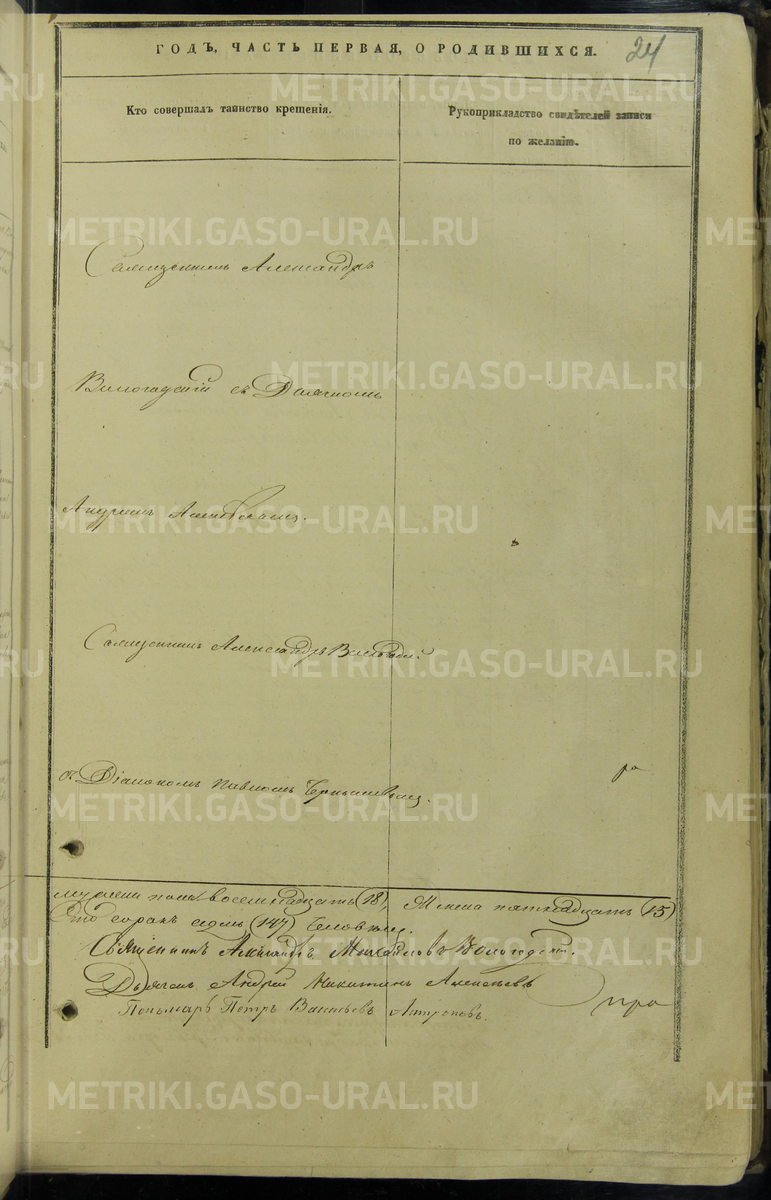 ГОДЪ, ЧАСТЬ ПЕРВАЯ, О РОДИВШИХСЯ.
24
Кто совершалъ таинство крещенія.
Рукоприкладство свидѣтелей записи
по желанію.
Священникъ Александръ
Вологодскій съ Дьячкомъ
Андреемъ
Священникъ Александръ
съ Діакономъ Павломъ
ра
мужеска пола восемнадцать (18), Женска пятнадцать (15)
Сто сорокъ седмь (147) Человѣкъ.
Священникъ Александръ Михайловъ Вологодскій.
Дьячекъ Андрей Никитинъ Алексѣевъ
Пономарь Петръ Васильевъ Антроповъ.
METRIKI.GASO-URAL.RU